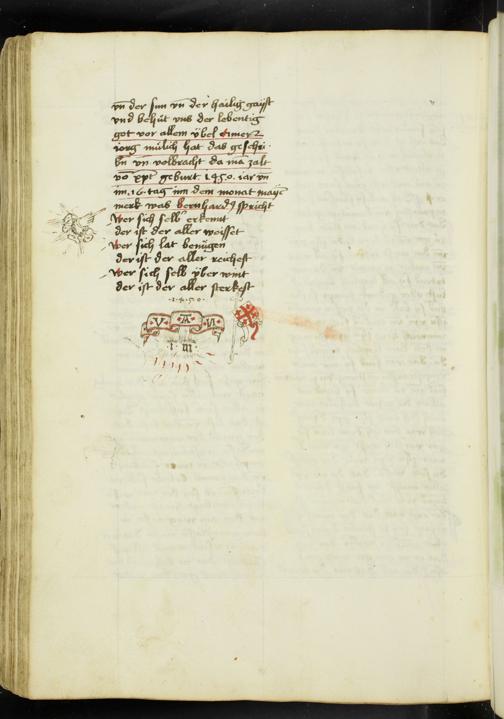 vn̄ der sun vn̄ der hailig gaist
vnd behüt vns der lebentig
got vor allem ÿbel amen
iorg mülich hat das geschri-
bn̄ vn̄ volbracht da mā zalt
vō xp̄i geburt .1450. iar vn̄
im .16. tag im dem monat mayē
merk was bernhard9 spricht
Wer sich selb erkennt
der ist der aller weissest
Wer sich lat benügen
der ist der aller reichest
Wer sich selb ÿber wint
der ist der aller sterkest
·1·4·5·0·
·V·A·N·
·I·M·